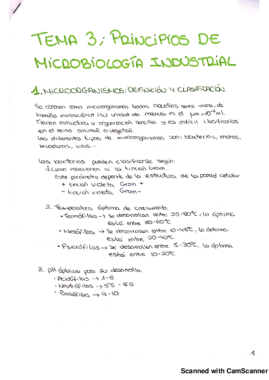 TEMA 3: PRINCIPIOS DE
MICROBIOLOGÍA INDUSTRIAL
1. MICROORGANISMOS: DEFINICIÓN Y CLASIFICACIÓN
Se conocen como microorganismos todos aquellos seres vivos de
tamaño microscópico (su unidad de medida es el μm → 10⁻⁶ m).
Tienen estructura y organización sencilla y es difícil clasificarlos
en el reino animal o vegetal.
Los diferentes tipos de microorganismos son: bacterias, mohos,
levaduras, virus...
Las bacterias pueden clasificarse según:
1. Como reaccionan a la tinción Gram.
Este parámetro depende de la estructura de la pared celular
+ tinción violeta, Gram +
- tinción violeta, Gram -
2. Temperatura óptima de crecimiento.
• Termófilas → se desarrollan entre 25-80ºC, la óptima
está entre 50-60ºC
• Mesófilas → Se desarrollan entre 10-45ºC, la óptima
está entre 20-40ºC
• Psicrófilas → se desarrollan entre 5-30ºC, la óptima
está entre 10-20ºC
3. pH óptimo para su desarrollo.
- Acidófilas → 1-5
- Neutrófilas → 5'5 - 8'5
- Basófilas → 9-10
1
Scanned with CamScanner